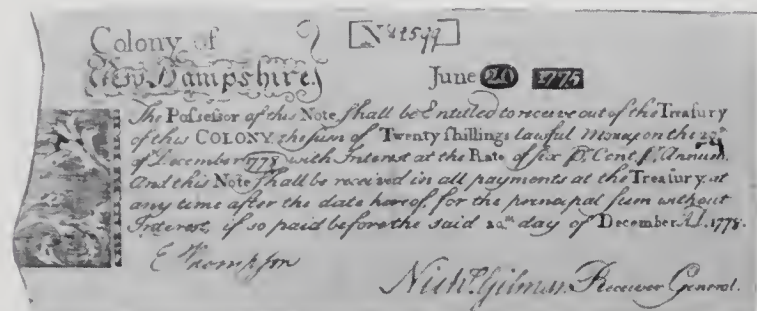 Colony of
New Hampshire.
June 20 1775
The Possessor of this Note shall be Entitled to receive out of the Treasury
of this COLONY the sum of Twenty shillings lawful Money on the 20th
of December 1778 with Interest at the Rate of six Pr. Cent Pr. Annum.
And this Note shall be received in all payments at the Treasury at
any time after the date hereof, for the principal sum without
Interest, if so paid before the said 20th day of December A.D. 1778.
E Thompson
Nichs. Gilman Receiver General.